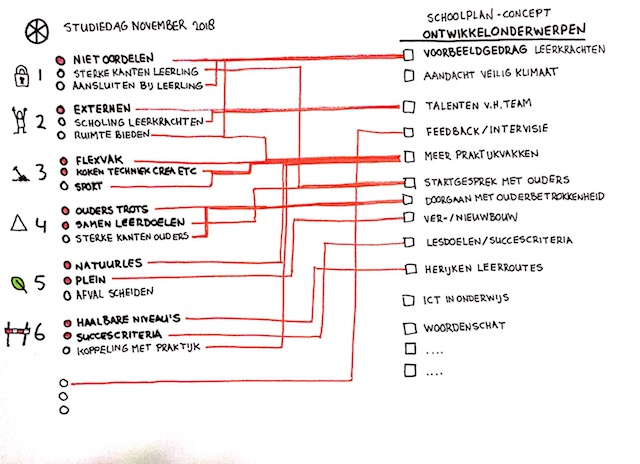 STUDIEDAG NOVEMBER 2018
SCHOOLPLAN - CONCEPT
ONTWIKKELONDERWERPEN
1
NIET OORDELEN
STERKE KANTEN LEERLING
AANSLUITEN BIJ LEERLING
2
EXTERNEN
SCHOLING LEERKRACHTEN
RUIMTE BIEDEN
3
FLEXVAK
KOKEN TECHNIEK CREA ETC
SPORT
4
OUDERS TROTS
SAMEN LEERDOELEN
STERKE KANTEN OUDERS
5
NATUURLES
PLEIN
AFVAL SCHEIDEN
6
HAALBARE NIVEAU'S
SUCCESCRITERIA
KOPPELING MET PRAKTIJK
VOORBEELDGEDRAG LEERKRACHTEN
AANDACHT VEILIG KLIMAAT
TALENTEN V.H. TEAM
FEEDBACK/INTERVISIE
MEER PRAKTIJKVAKKEN
STARTGESPREK MET OUDERS
DOORGAAN MET OUDERBETROKKENHEID
VER-/NIEUWBOUW
LESDOELEN/SUCCESCRITERIA
HERIJKEN LEERROUTES
ICT IN ONDERWIJS
WOORDENSCHAT
....
....